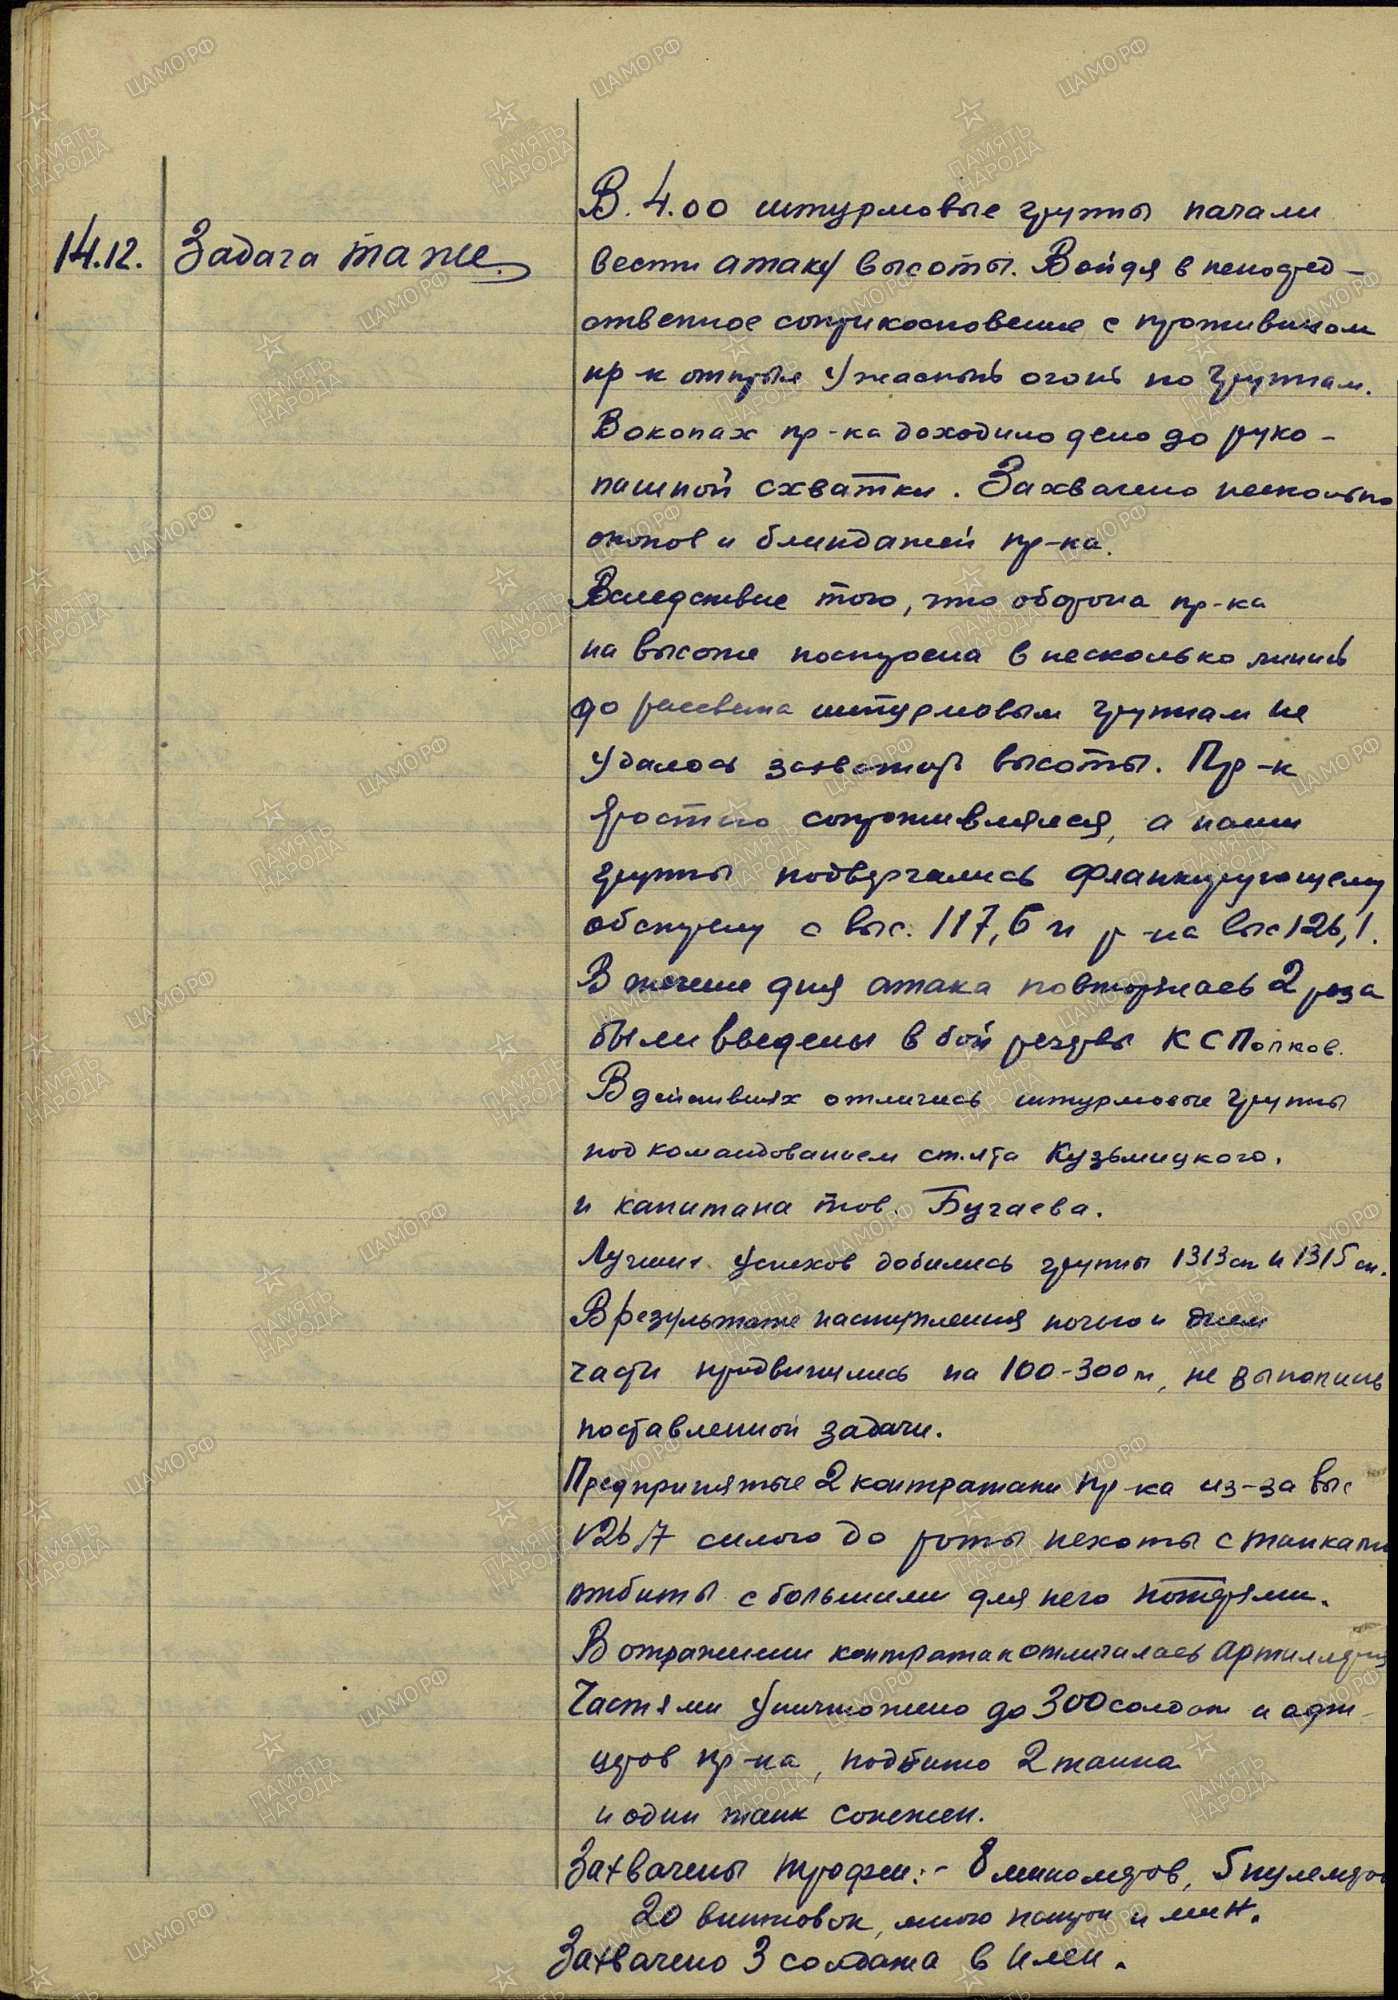 В 4.00 штурмовые группы начали
14.12. Задача та же.
вести атаку высоты. Войдя в непосред-
ственное соприкосновение с противником
пр-к открыл ужасный огонь по группам.
В окопах пр-ка доходило дело до руко-
пашной схватки. Захвачено несколько
окопов и блиндажей пр-ка.
Вследствие того, что оборона пр-ка
на высоте построена в несколько линий
до рассвета штурмовым группам не
удалось захватить высоты. Пр-к
яростно сопротивлялся, а наши
группы подвергались фланкирующему
обстрелу с выс. 117,6 и р-на выс 126,1.
В течение дня атака повторялась 2 раза
были введены в бой резервы КСПолков.
В действиях отличились штурмовые группы
под командованием ст. л-та Кузьмицкого.
и капитана тов. Бугаева.
Лучших успехов добились группы 1313 сп и 1315 сп.
В результате наступления ночью и днем
части продвинулись на 100-300 м, не выполнив
поставленной задачи.
Предпринятые 2 контратаки пр-ка из-за выс
126,7 силою до роты пехоты с танками
отбиты с большими для него потерями.
В отражении контратак отличалась артиллерия
Частями уничтожено до 300 солдат и офи-
церов пр-ка, подбито 2 танка
и один танк сожжен.
Захвачены трофеи: - 8 минометов, 5 пулеметов
20 винтовок, много патрон и мин.
Захвачено 3 солдата в плен.
ЦАМО.РФ
ПАМЯТЬ
НАРОДА